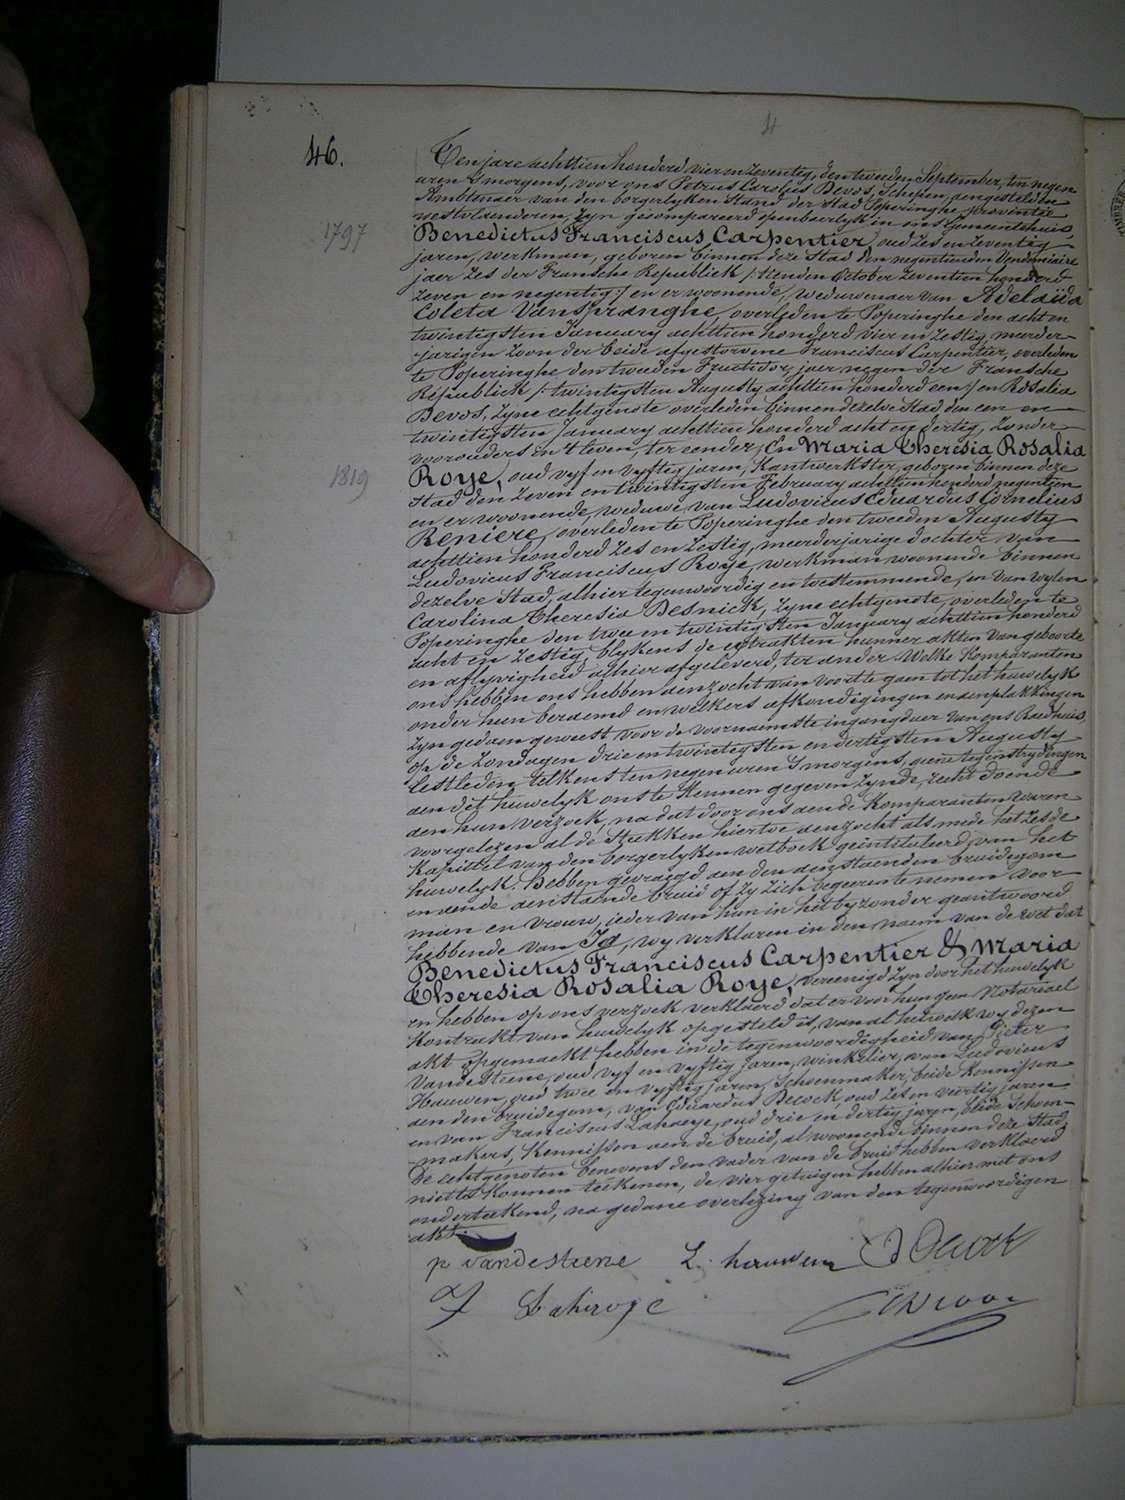 4
46.
Ten jare achttien honderd vier en zeventig, den tweeden September, ten negen
uren s'morgens, voor ons Petrus Carolus Devos, Schepen, aengestelden
Ambtenaer van den borgerlyken stand der stad Poperinghe, provintie
westvlaenderen, zyn gecompareerd openbaerlyk in ons Gemeentehuis,
1797
Benedictus Franciscus Carpentier, oud zes en zeventig
jaren, werkman, geboren binnen deze Stad den negentienden Vendemiaire
jaer zes der Fransche Republiek /: tienden October zeventien honderd
zeven en negentig :/ en er woonende, weduwenaer van Adelaïda
Coleta Vanspranghe, overleden te Poperinghe den acht en
twintigsten January achttien honderd vier en zestig, meerder-
jarigen zoon der beide afgestorvene Franciscus Carpentier, overleden
te Poperinghe den tweeden Fructidor, jaer negen der Fransche
Republiek /: twintigsten Augusty achttien honderd een :/ en Rosalia
Devos, zyne echtgenote overleden binnen dezelve Stad den een en
twintigsten January achttien honderd acht en dertig, zonder
voorouders in 't leven, ter eender, En Maria Theresia Rosalia
1819
Roye, oud vyf en vyftig jaren, Kantwerkster, geboren binnen deze
Stad den zeven en twintigsten February achttien honderd negentien
en er woonende, weduwe van Ludovicus Eduardus Cornelius
Reniere, overleden te Poperinghe den tweeden Augusty
achttien honderd zes en zestig, meerderjarige dochter van
Ludovicus Franciscus Roye, werkman woonende binnen
dezelve Stad, alhier tegenwoordig en toestemmende, en van wylen
Carolina Theresia Desnick, zyne echtgenote, overleden te
Poperinghe den twee en twintigsten January achttien honderd
acht en zestig, blykens de extrakten hunner akten van geboorte
en aflyvigheid alhier afgeleverd, ter ander. Welke Komparanten
ons hebben ons hebben aenzocht van voort te gaen tot het huwelyk
onder hun beraemd en welkers afkondigingen en aenplakkingen
zyn gedaen geweest voor de voornaemste ingangdeur van ons Raedhuis,
op de zondagen drie en twintigsten en dertigsten Augusty
lestleden, telkens ten negen uren s'morgens, geene tegenstrydingen
aen dit huwelyk ons te kennen gegeven zynde, recht doende
aen hun verzoek, na dat door ons aen de Komparanten waren
voorgelezen al de Stukken hiertoe aenzocht als mede het zesde
Kapittel van den borgerlyken wetboek geïntituleerd, van het
huwelyk. Hebben gevraegd aen den aenstaenden bruidegom
en aende aenstaende bruid of zy zich begeeren te nemen voor
man en vrouw, ieder van hun in het byzonder geantwoord
hebbende van Ja, wy verklaren in den naem van de wet dat
Benedictus Franciscus Carpentier & Maria
Theresia Rosalia Roye, vereenigd zyn door het huwelyk
en hebben op ons verzoek verklaerd dat er voor hun geen Notariael
Kontrakt van huwelyk opgesteld is, van al hetwelk wy dezen
akt opgemaekt hebben in de tegenwoordigheid van Pieter
Vandestiene, oud vyf en vyftig jaren, winkelier, van Ludovicus
Hauwen, oud twee en vyftig jaren, Schoenmaker, beide Kennissen
aen den bruidegom, van Eduardus Decock, oud zes en veertig jaren
en van Franciscus Lahaeye, oud drie en dertig jaren, beide Schoen-
makers, Kennissen aen de bruid, al woonende binnen deze Stad,
De echtgenoten benevens den vader van de bruid hebben verklaerd
niet te konnen teekenen, de vier getuigen hebben alhier met ons
onderteekend, na gedane overlezing van den tegenwoordigen
akt.
p vandestiene L. hauwen Decock
F